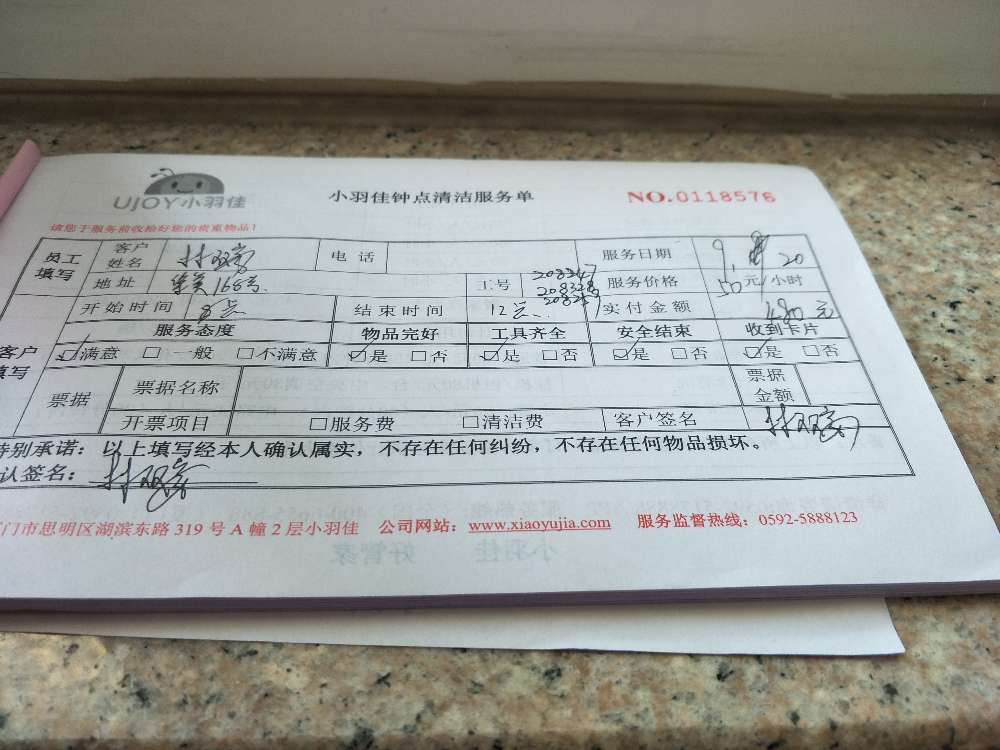 UJOY小羽佳 小羽佳钟点清洁服务单 NO.0118576
请您于服务前收拾好您的贵重物品!
员工填写 客户姓名 林 电话 服务日期 9. 20
地址 集美168号 工号 208347 208328 服务价格 50元/小时
开始时间 8点 结束时间 12点 实付金额 480元
客户填写 服务态度 物品完好 工具齐全 安全结束 收到卡片
☑满意 □一般 □不满意 ☑是 □否 ☑是 □否 ☑是 □否 ☑是 □否
票据 票据名称 票据金额
开票项目 □服务费 □清洁费 客户签名 林
特别承诺:以上填写经本人确认属实,不存在任何纠纷,不存在任何物品损坏。
认签名: 林
门市思明区湖滨东路 319 号 A 幢 2 层小羽佳 公司网站:www.xiaoyujia.com 服务监督热线:0592-5888123
小羽佳 好管家